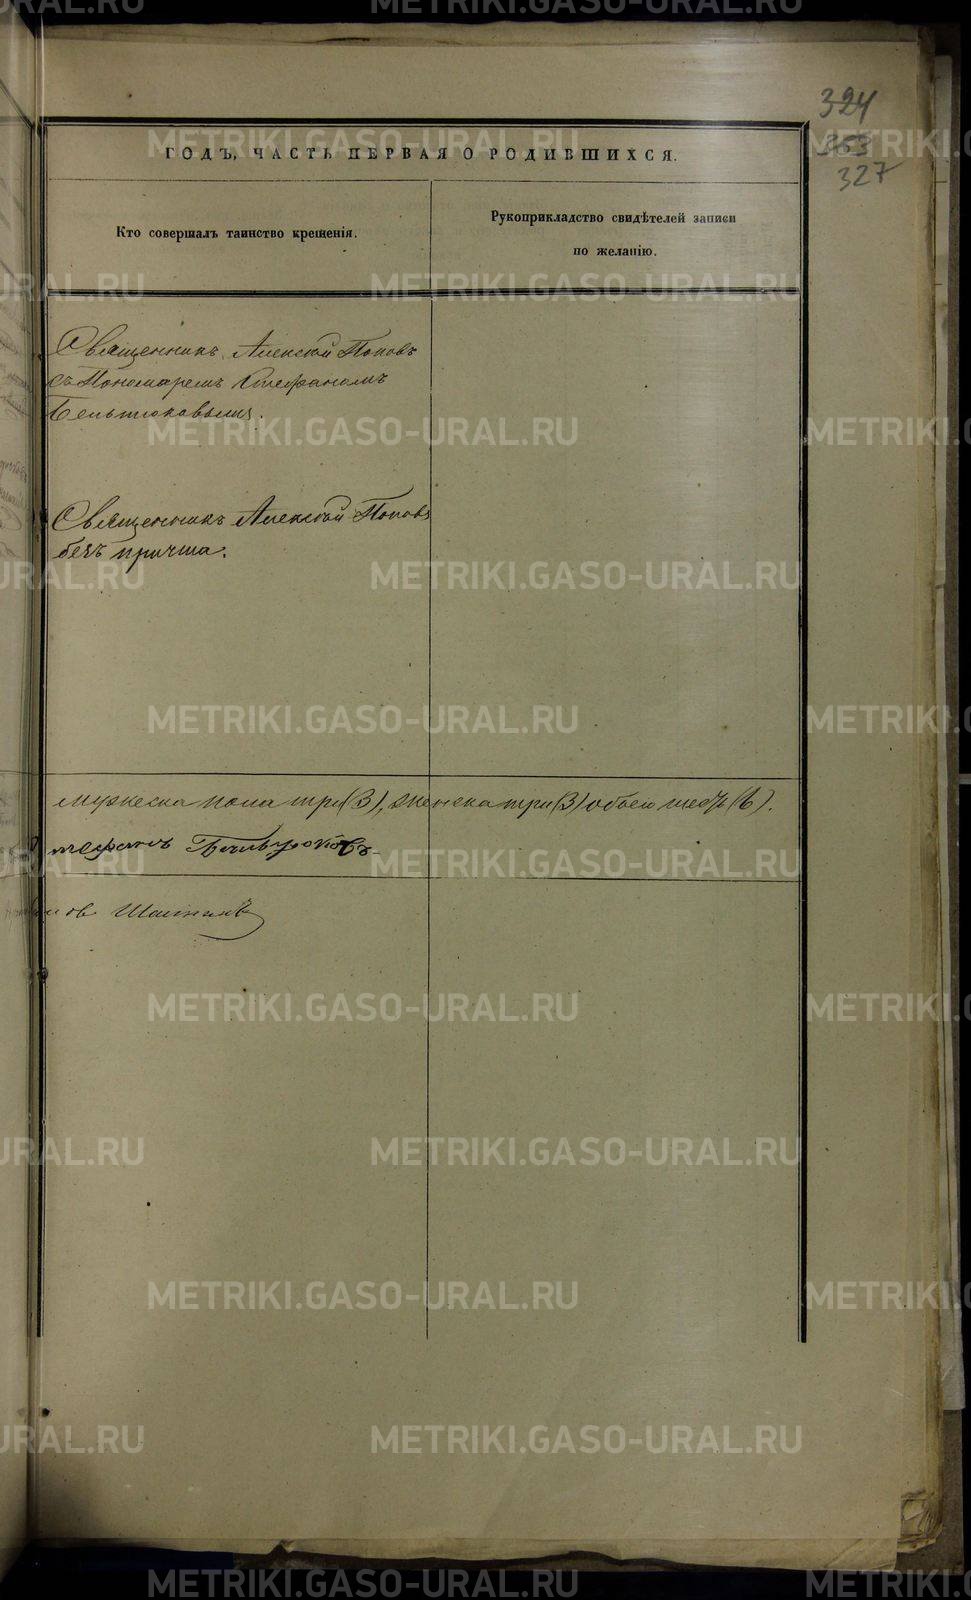 324
353
327
ГОДЪ, ЧАСТЬ ПЕРВАЯ О РОДИВШИХСЯ.
Кто совершалъ таинство крещенія.
Рукоприкладство свидѣтелей записи
по желанію.
Священникъ Алексѣй Поповъ
съ Пономаремъ Стефаномъ
Бельтюковымъ.
Священникъ Алексѣй Поповъ
безъ причта.
мужеска пола три (3), женска три (3) обоего шесть (6).
METRIKI.GASO-URAL.RU